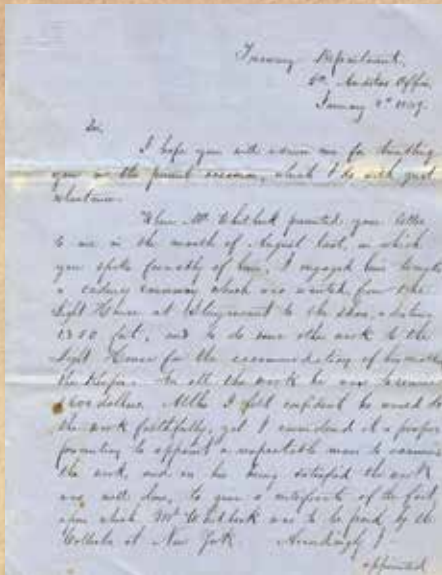 Treasury Department,
5th Auditors Office
January 2d 1849
Sir,
I hope you will excuse me for troubling
you on the present occasion, which I do with great
reluctance.
When Mr Whitbeck presented your letter
to me in the month of August last, in which
you spoke favorably of him, I engaged him to
a causeway which was wanted from the
Light House at to the shore, a distance
1350 feet, and to do some other work to the
Light House for the accommodation of his mother
the Keeper. For all the work he was to receive
dollars. Altho I felt confident he would do
the work faithfully, yet I considered it a proper
to appoint a respectable man to examine
the work, and on his being satisfied the work
was well done, to give a certificate of the fact
upon which Mr Whitbeck was to be paid by the
Collector at New York. Accordingly I
appointed